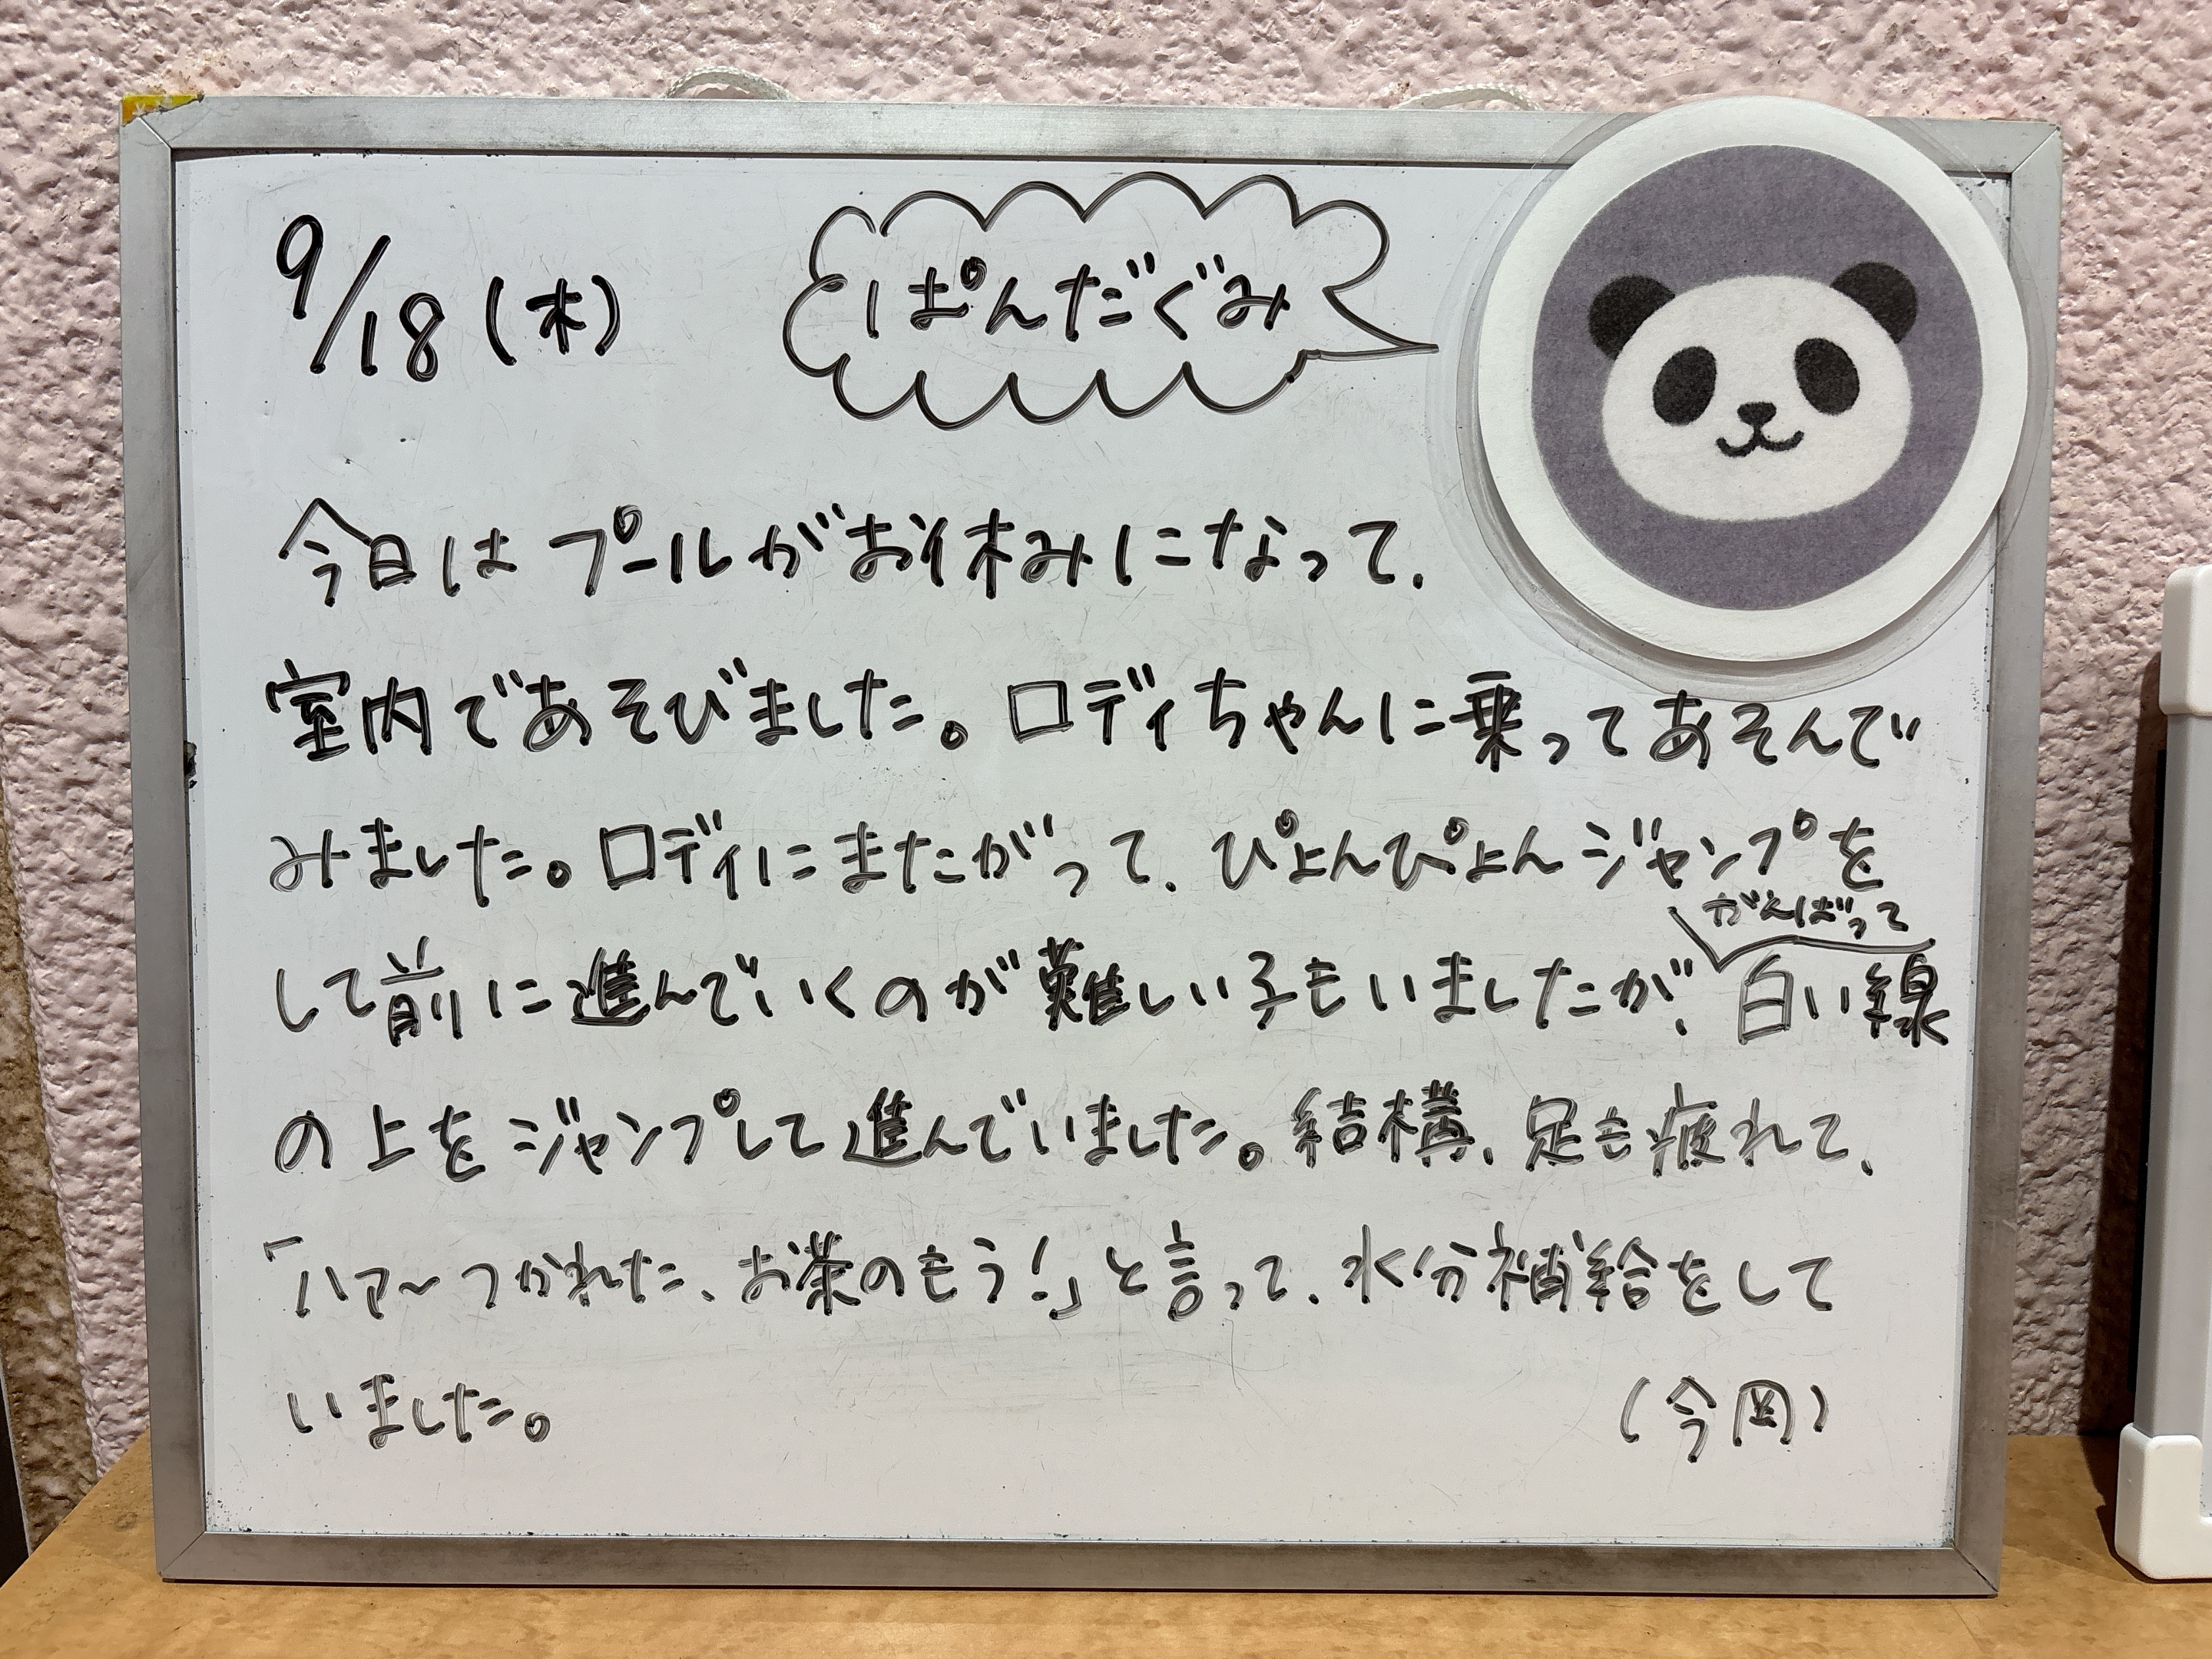 9/18(木)
ぱんだぐみ
今日はプールがお休みになって、
室内であそびました。ロディちゃんに乗ってあそんで
みました。ロディにまたがって、ぴょんぴょんジャンプを
がんばって
して前に進んでいくのが難しい子もいましたが、白い線
の上をジャンプして進んでいました。結構、足も疲れて、
「ハァ〜つかれた、お茶のもう!」と言って、水分補給をして
いました。
(今岡)